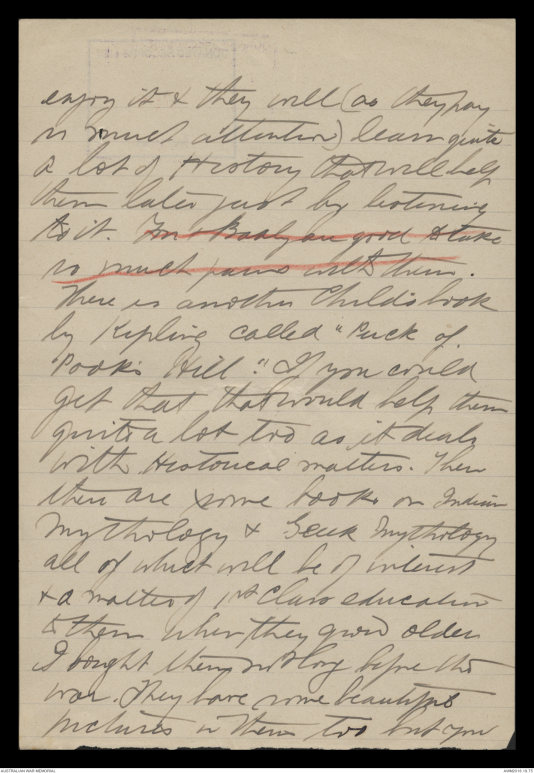 enjoy it & they will (as they pay
so much attention) learn quite
a lot of History that will help
them later just by listening
to it. I'm Baby are good to take
so much pains with them.
There is another Child's book
by Kipling called "Puck of
Pook's Hill." If you could
get that that would help them
quite a lot too as it deals
with Historical matters. Then
there are some books on Indian
Mythology & Greek Mythology
all of which will be of interest
& a matter of 1st Class education
to them when they grow older
I bought them not long before the
war. They have some beautiful
pictures in them too but you
AUSTRALIAN WAR MEMORIAL